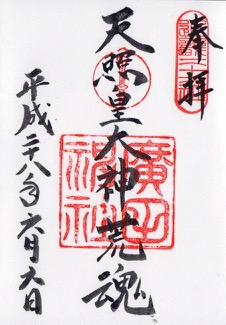 奉拝
天照皇大神荒魂
廣田神社
平成二十八年六月六日